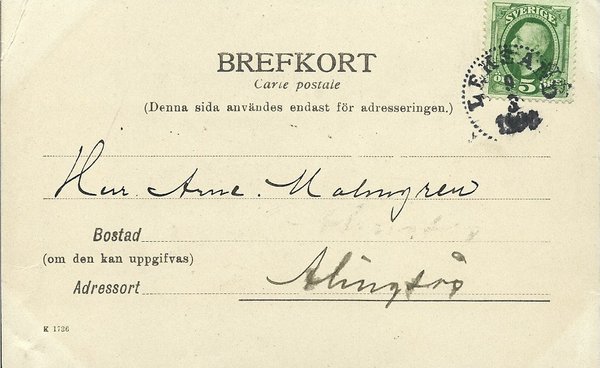 SVERIGE
5
BREFKORT
Carte postale
(Denna sida användes endast för adresseringen.)
Herr Arne Malmgren
Bostad
(om den kan uppgifvas)
Alingsås
Adressort
K 1726